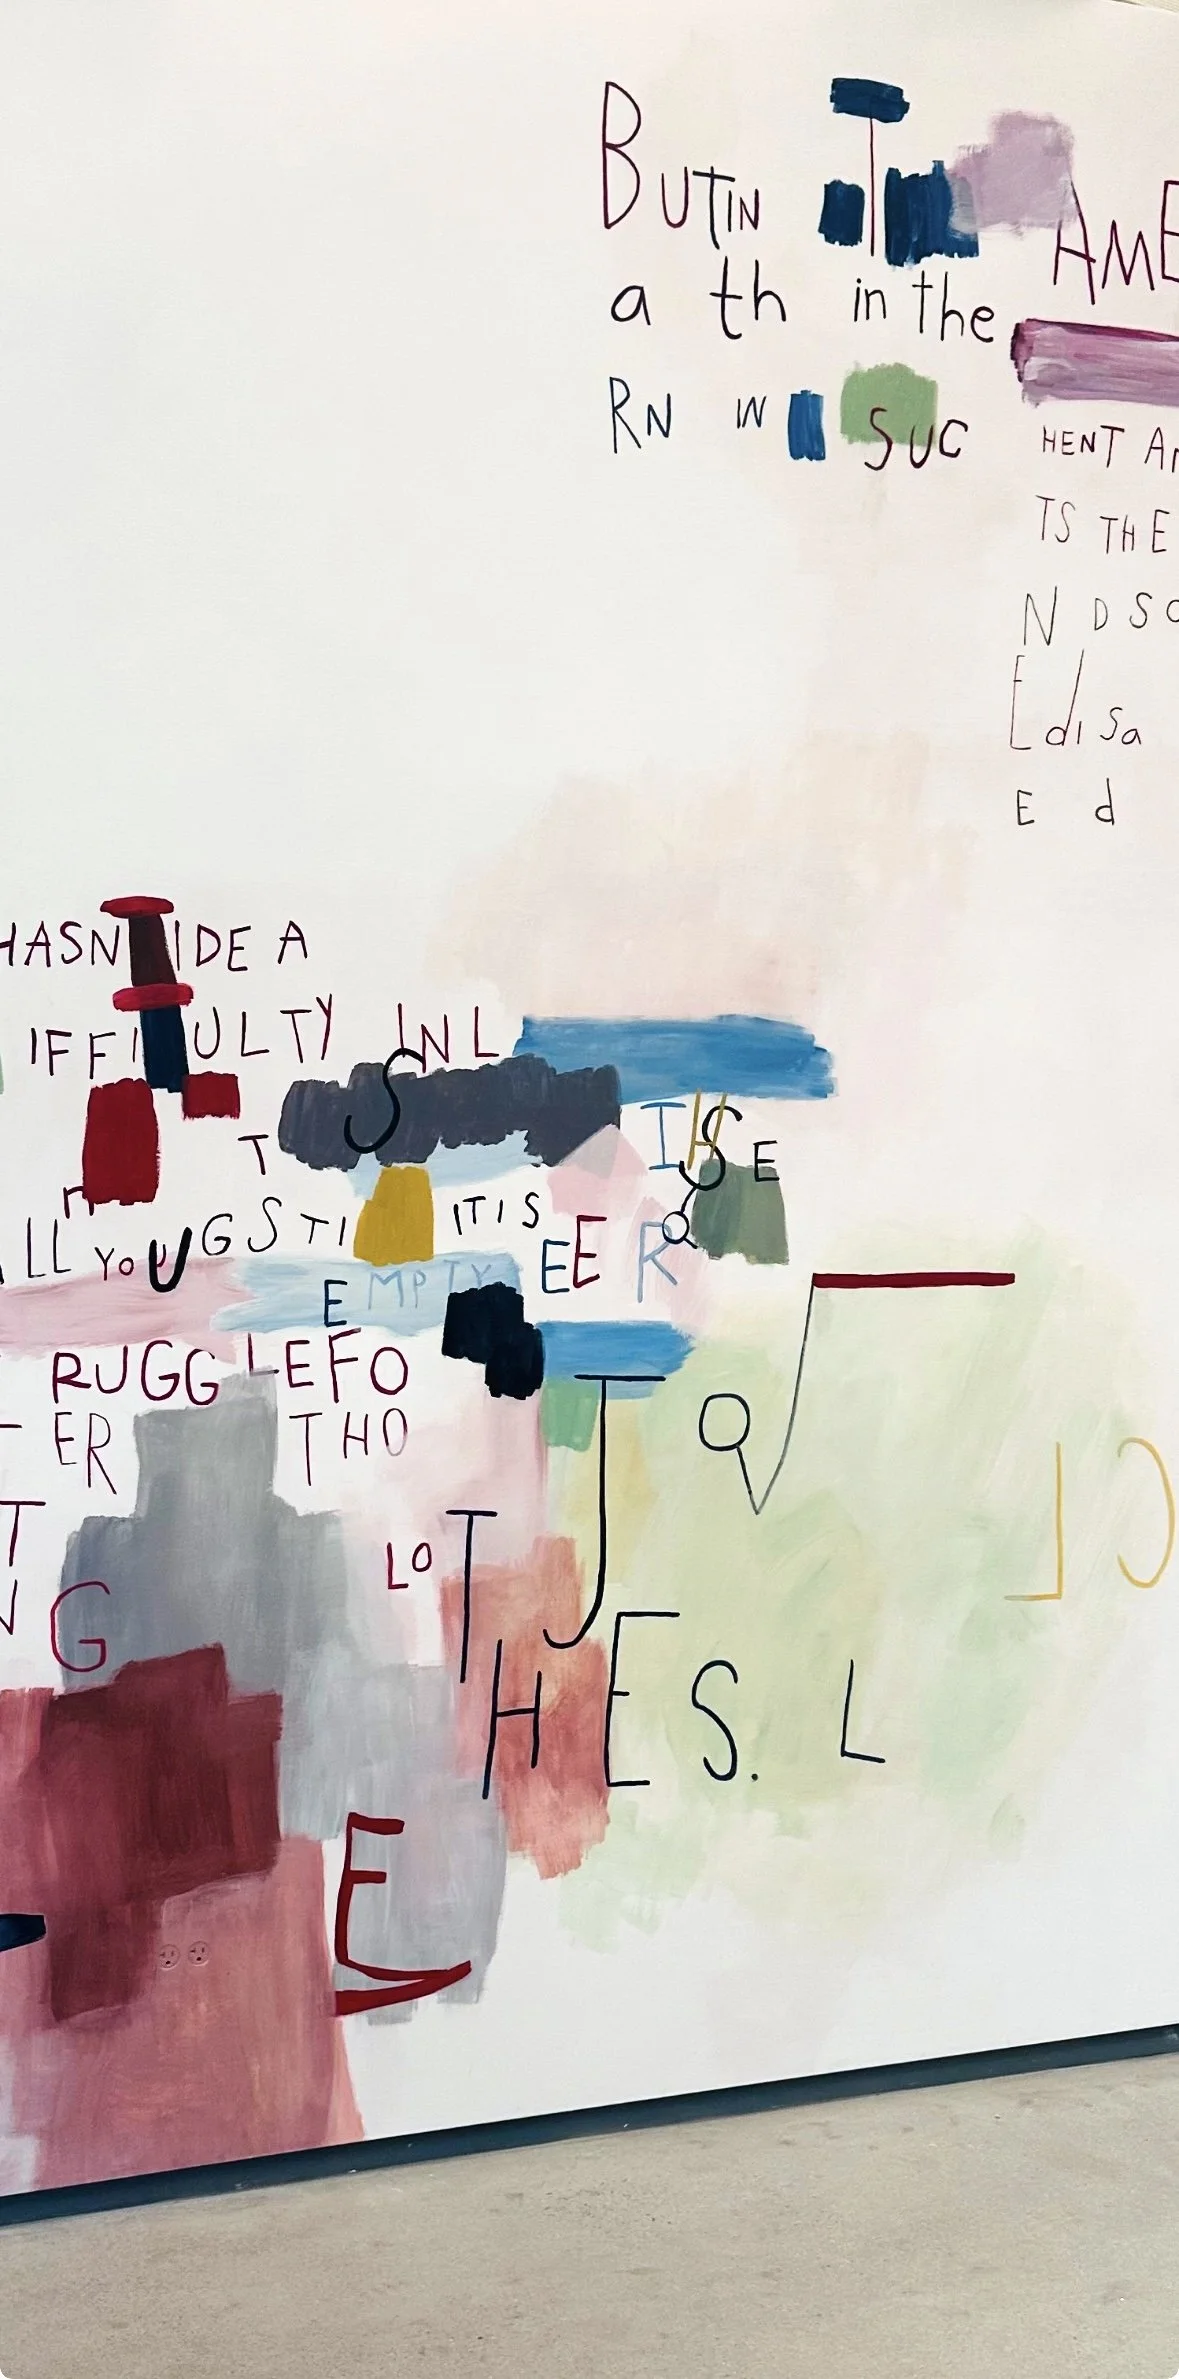 BUTIN T AME
a th in the
RN IN SUC
HENT AN
TS THE
N D SO
Edisa
E d
HASN T IDE A
IFFI ULTY IN L
T S I H S E
n
LL YOU U G S TI ITIS
EMPTY EE R
RUGGLEFO
ER THO
T J Q
LO T
G
H E S. L
E